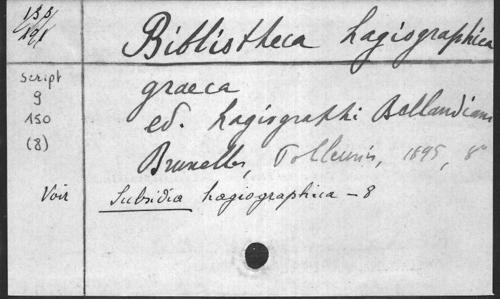 Bibliotheca hagiographica
script
9
150
(8)
graeca
ed. hagiographi Bollandiani
Bruxelles, Polleunis, 1895, 8°
Voir
Subsidia hagiographica - 8